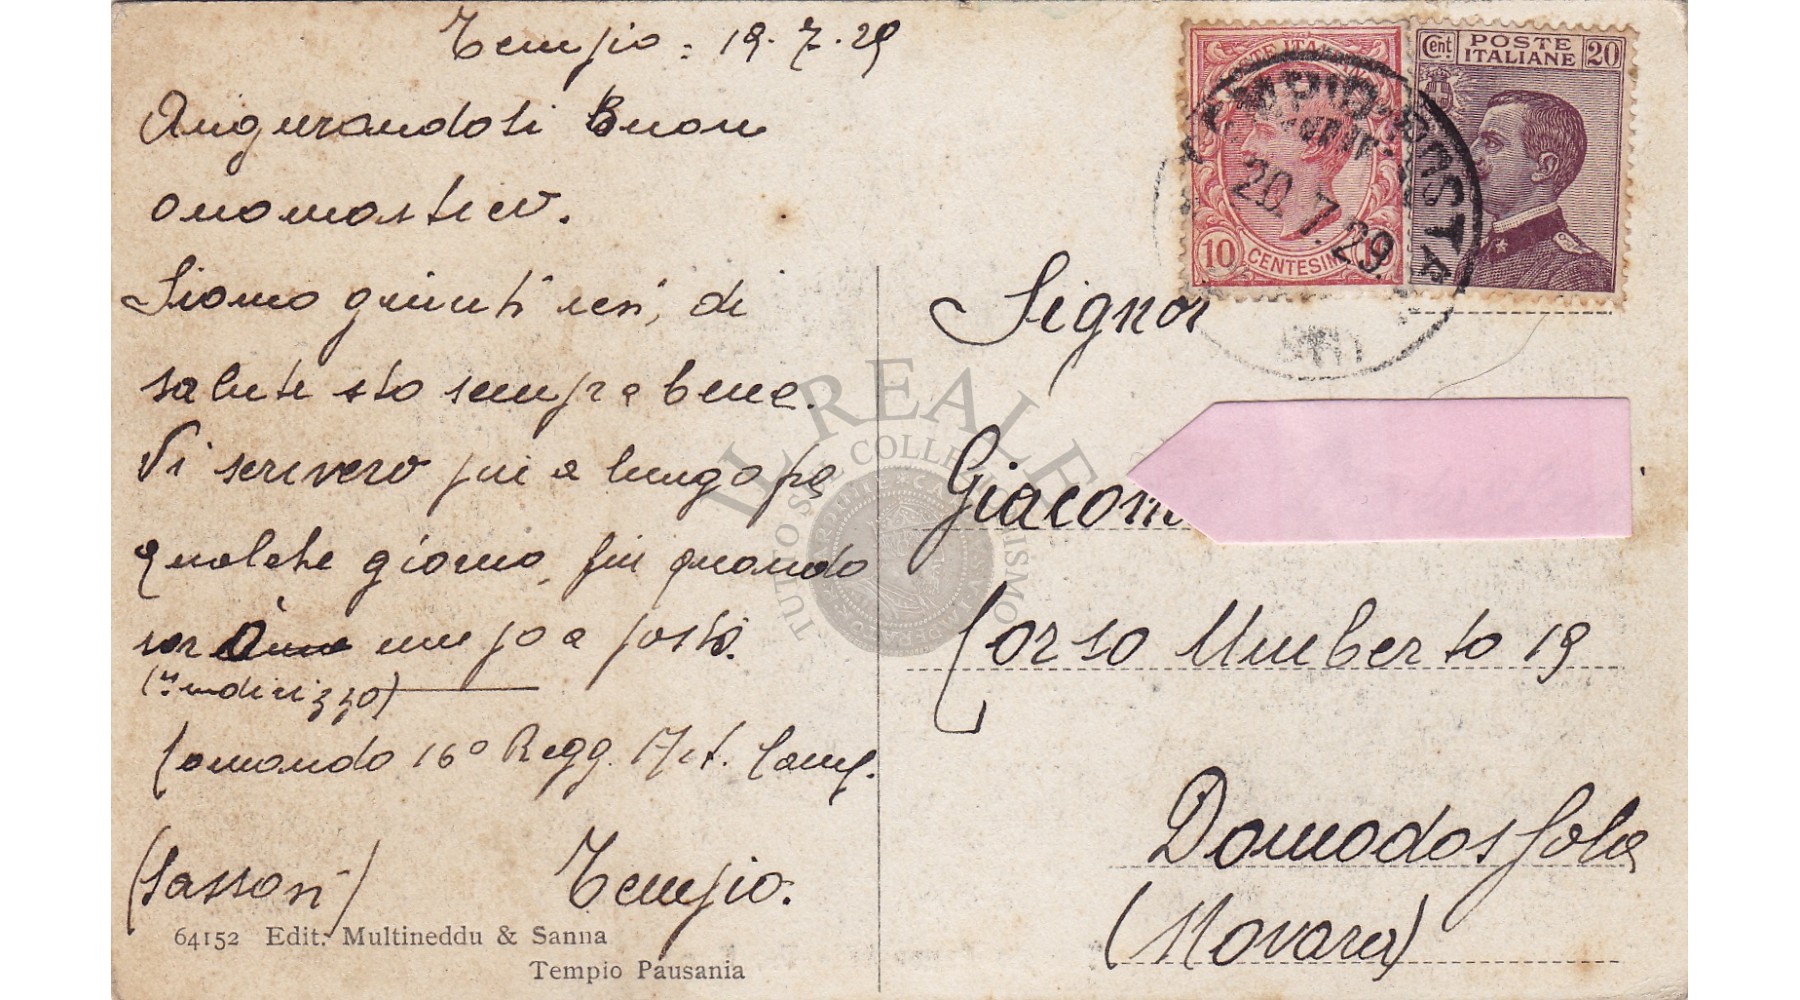 Tempio: 19.7.29
Augurandoti Buon
onomastico.
Siamo giunti ieri, di
salute sto sempre bene.
Vi scriverò più a lungo fra
qualche giorno, fin quando
sarò un po a posto.
(indirizzo)
Comando 16º Regg. Art. Camp.
(Sassari) Tempio.
64152 Edit. Multineddu & Sanna
Tempio Pausania
POSTE ITALIANE
10 CENTESIMI 10
Cent. POSTE ITALIANE 20
20.7.29
Signor
Giacom
Corso Umberto 19
Domodossola
(Novara)
IL REALE
TUTTO SUL COLLEZIONISMO